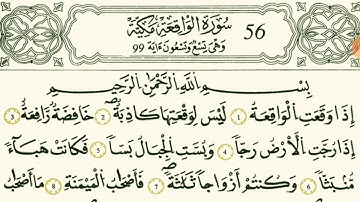 سُورَةُ الْوَاقِعَةِ مَكِّيَّةٌ 56
وَهِيَ تِسْعٌ وَتِسْعُونَ ءَايَةً 99
بِسْمِ اللَّهِ الرَّحْمَٰنِ الرَّحِيمِ
إِذَا وَقَعَتِ الْوَاقِعَةُ 1 لَيْسَ لِوَقْعَتِهَا كَاذِبَةٌ 2 خَافِضَةٌ رَّافِعَةٌ 3
إِذَا رُجَّتِ الْأَرْضُ رَجًّا 4 وَبُسَّتِ الْجِبَالُ بَسًّا 5 فَكَانَتْ هَبَآءً
مُّنۢبَثًّا 6 وَكُنتُمْ أَزْوَاجًا ثَلَاثَةً 7 فَأَصْحَابُ الْمَيْمَنَةِ 8 مَآ أَصْحَابُ